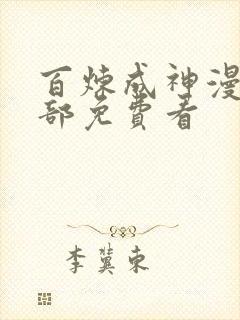 百炼成神漫
部免费看
李冀东